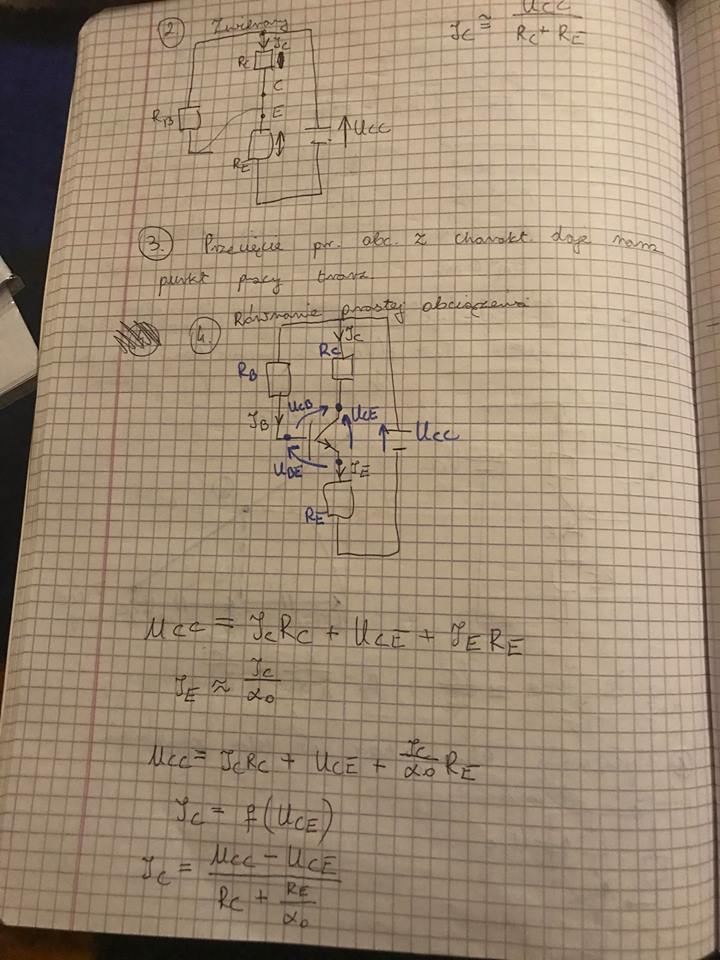 I_C ≅ U_CC / (R_C + R_E)
2 Zwieramy
I_C
R_C
C
R_B
E
U_CC
R_E
3. Przecięcie pr. obc. z charakt. daje nam
punkt pracy tranz.
4. Równanie prostej obciążenia
I_C
R_C
R_B
U_CB
U_CE
I_B
U_CC
U_BE
I_E
R_E
U_CC = I_C R_C + U_CE + I_E R_E
I_E ≈ I_C / α_0
U_CC = I_C R_C + U_CE + I_C / α_0 R_E
I_C = f(U_CE)
I_C = (U_CC - U_CE) / (R_C + R_E / α_0)